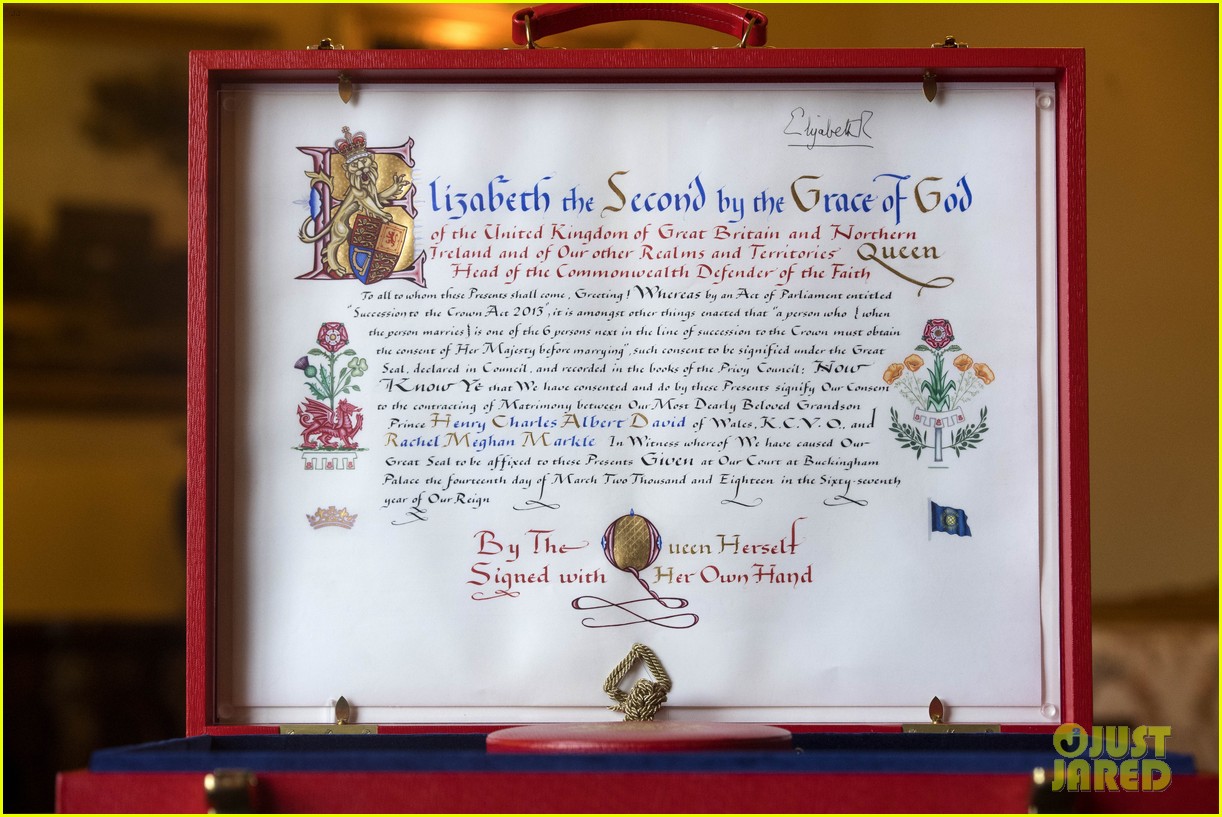 Elizabeth R
Elizabeth the Second by the Grace of God
of the United Kingdom of Great Britain and Northern
Ireland and of Our other Realms and Territories Queen
Head of the Commonwealth Defender of the Faith
To all to whom these Presents shall come, Greeting! Whereas by an Act of Parliament entitled
"Succession to the Crown Act 2013", it is amongst other things enacted that "a person who { when
the person marries } is one of the 6 persons next in the line of succession to the Crown must obtain
the consent of Her Majesty before marrying", such consent to be signified under the Great
Seal, declared in Council, and recorded in the books of the Privy Council: Now
Know Ye that We have consented and do by these Presents signify Our Consent
to the contracting of Matrimony between Our Most Dearly Beloved Grandson
Prince Henry Charles Albert David of Wales, K.C.V.O., and
Rachel Meghan Markle In Witness whereof We have caused Our
Great Seal to be affixed to these Presents Given at Our Court at Buckingham
Palace the fourteenth day of March Two Thousand and Eighteen in the Sixty-seventh
year of Our Reign
By The Queen Herself
Signed with Her Own Hand
JUST
JARED